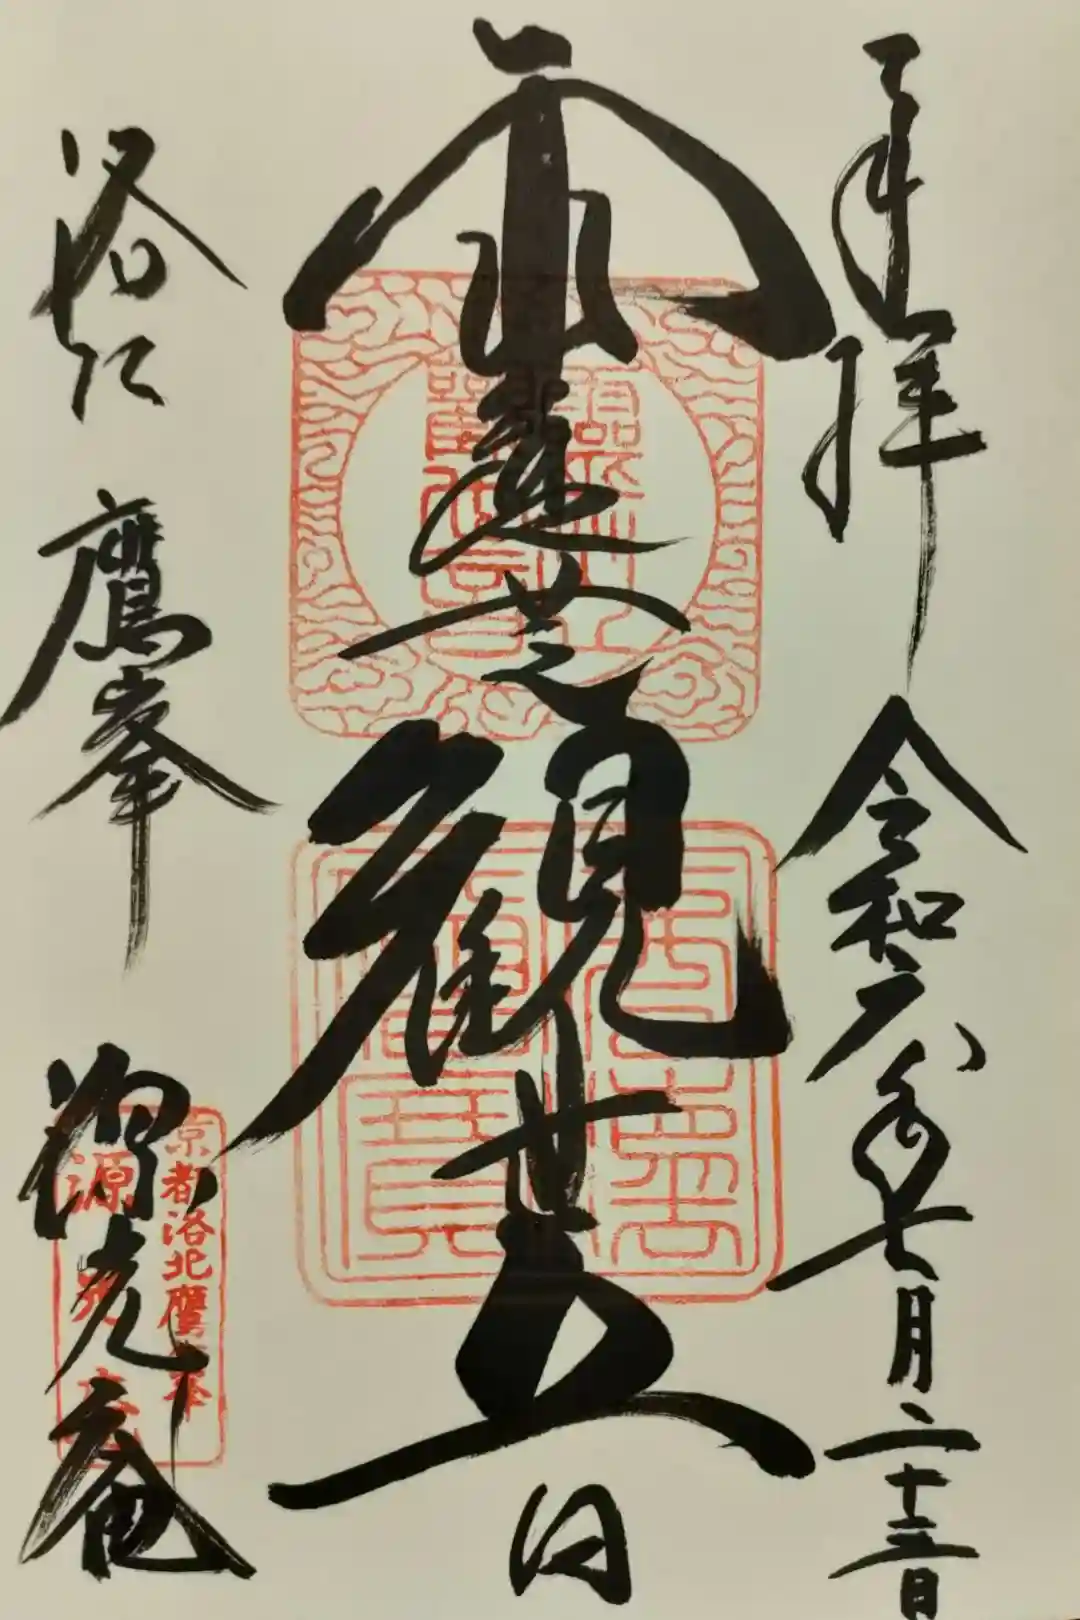 奉拝
令和六年七月二十三日
霊芝観世音
洛北 鷹峯
源光庵
京都洛北鷹峯
源光庵